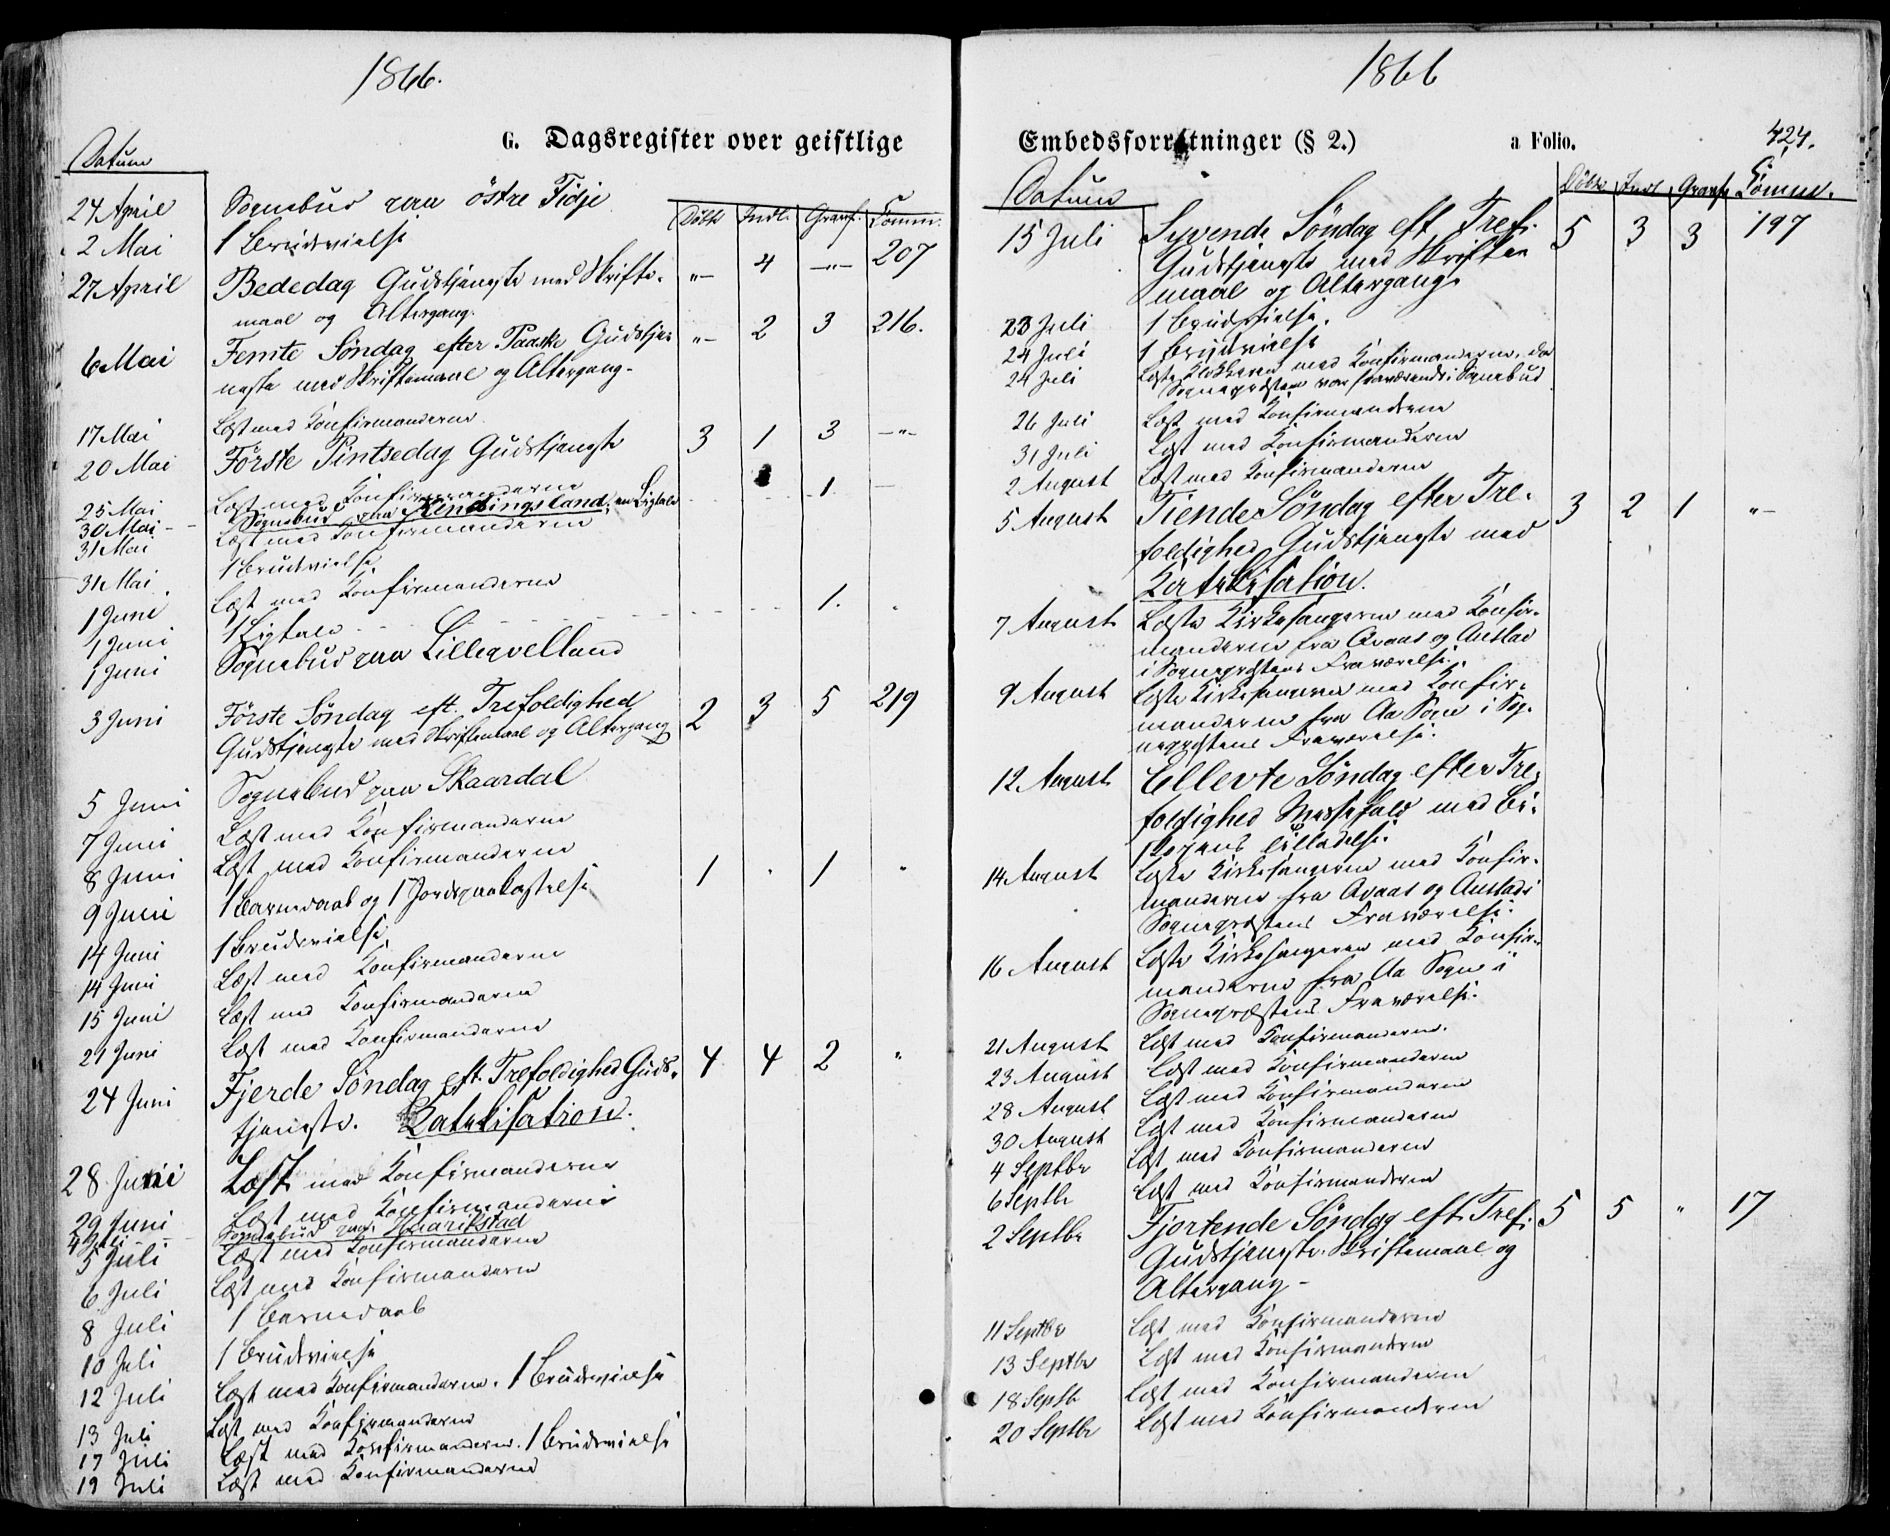 1866.
G. Dagsregister over geistlige
Datum
Döbte Indl. Gravf. Komm.
24 April Sognebud paa östre Tidje
2 Mai 1 Brudevielse
27 April Bededag Gudstjeneste med Skrifte- „— 4 —„— 207
maal og Altergang.
6 Mai Femte Søndag efter Paaske Gudstje- „— 2 3 216.
neste med Skriftemaal og Altergang-
17 Mai Læst med Konfirmanderne
20 Mai Förste Pintsedag Gudstjeneste 3 1 3 —„—
25 Mai Læst med Konfirmanderne
30 Mai - - Sognebud paa Rendingsland, en Ligtale 1
31 Mai Læst med Konfirmanderne
31 Mai 1 Brudevielse.
1 Juni Læst med Konfirmanderne
1 Juni 1 Ligtale 1.
1 Juni Sognebud paa Lilleqvelland
3 Juni Förste Søndag eft. Trefoldighed 2 3 5 219
Gudstjeneste med Skriftemaal og Altergang
5 Juni Sognebud paa Skaardal
7 Juni Læst med Konfirmanderne
8 Juni Læst med Konfirmanderne
9 Juni 1 Barnedaab og 1 Jordpaakastelse 1 „ 1 „
14 Juni 1 Brudevielse
14 Juni Læst med Konfirmanderne
15 Juni Læst med Konfirmanderne
21 Juni Læst med Konfirmanderne
24 Juni Fjerde Søndag eft. Trefoldighed Guds- 4 4 2 „
tjeneste. Katekisation.
28 Juni Læst med Konfirmanderne
29 Juni Læst med Konfirmanderne
4 Juli - - Sognebud paa
5 Juli Læst med Konfirmanderne
6 Juli Læst med Konfirmanderne
8 Juli 1 Barnedaab
10 Juli 1 Brudevielse
12 Juli Læst med Konfirmanderne. 1 Brudevielse
13 Juli Læst med Konfirmanderne
17 Juli Læst med Konfirmanderne. 1 Brudevielse
19 Juli Læst med Konfirmanderne
1866
Embedsforretninger (§ 2.) a Folio. 424.
Datum Döbte Indl. Gravf. Komm.
15 Juli Syvende Søndag eft. Tref. 5 3 3 197
Gudstjeneste med Skrifte-
maal og Altergang.
23 Juli 1 Brudevielse.
24 Juli 1 Brudevielse
24 Juli Læste Klokkeren med Konfirmanderne, da
Sognepresten var fraværende i Sognebud
26 Juli Læst med Konfirmanderne
31 Juli Læst med Konfirmanderne
2 August Læst med Konfirmanderne
5 August Tiende Søndag efter Tre- 3 2 1 „—
foldighed Gudstjeneste med
Katekisation.
7 August Læste Kirkesangeren med Konfir-
manderne fra Qvaas og Austad
i Sogneprestens Fraværelse.
9 August Læste Kirkesangeren med Konfir-
manderne fra Aa Sogn i Sog-
neprestens Fraværelse.
12 August Ellevte Søndag efter Tre-
foldighed Messefald med Bi-
skopens Tilladelse.
14 August Læste Kirkesangeren med Konfir-
manderne fra Qvaas og Austad i
Sogneprestens Fraværelse.
16 August Læste Kirkesangeren med Konfir-
manderne fra Aa Sogn i
Sogneprestens Fraværelse.
21 August Læst med Konfirmanderne.
23 August Læst med Konfirmanderne
28 August Læst med Konfirmanderne
30 August Læst med Konfirmanderne
4 Septbr Læst med Konfirmanderne
6 Septbr Læst med Konfirmanderne
2 Septbr Fjortende Søndag eft. Tref. 5 5 „ 17
Gudstjeneste. Skriftemaal og
Altergang-
11 Septbr Læst med Konfirmanderne
13 Septbr Læst med Konfirmanderne
18 Septbr Læst med Konfirmanderne
20 Septbr Læst med Konfirmanderne